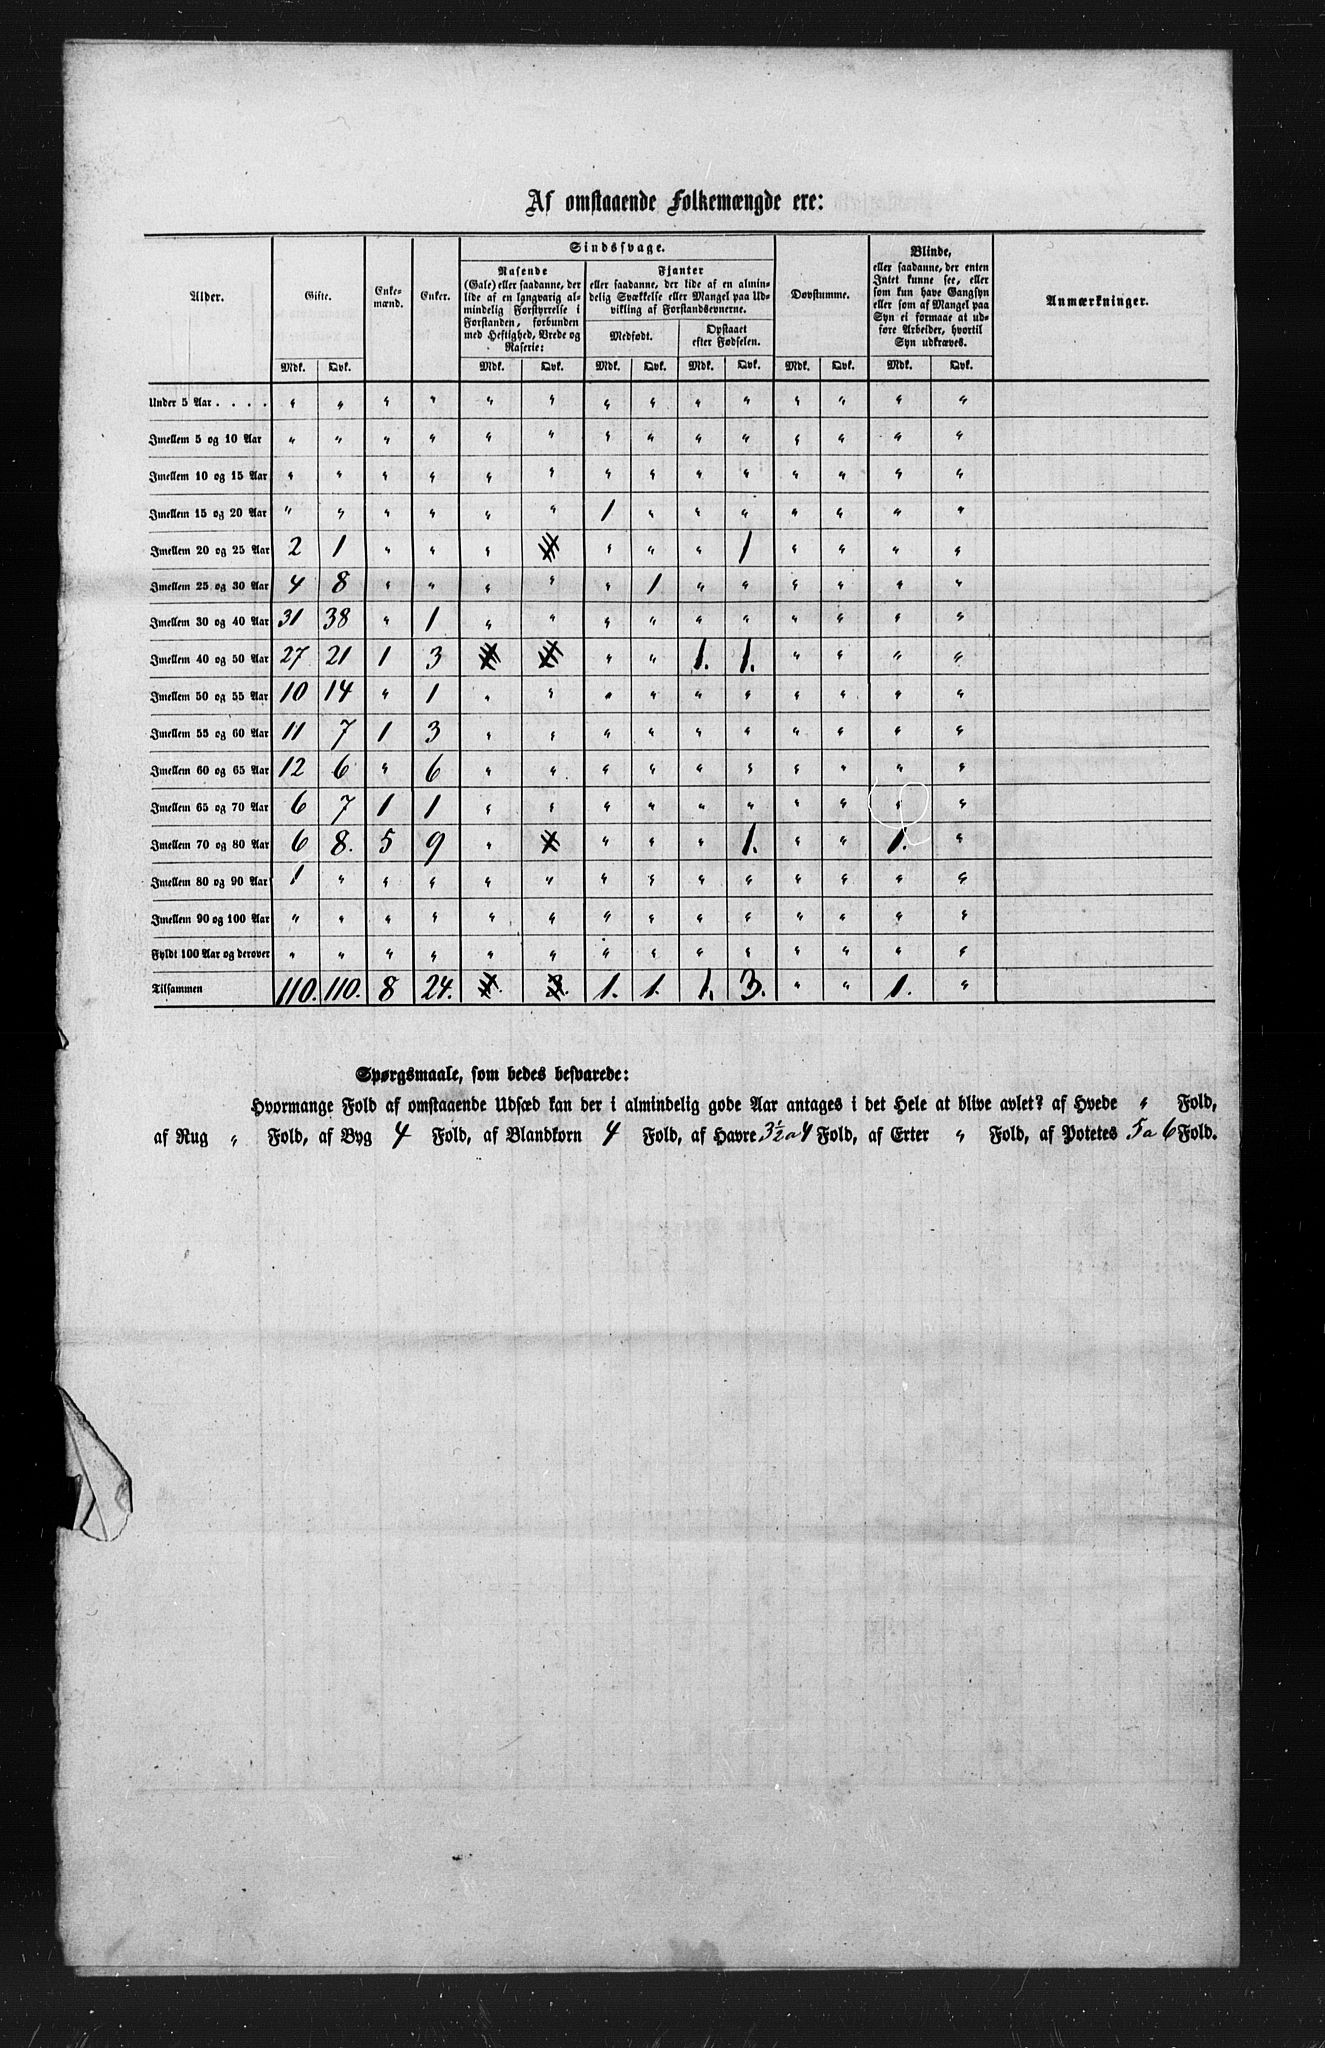 Af omstaaende Folkemængde ere:
Alder. Gifte. Enke-mænd. Enker. Sindssvage. Døvstumme. Blinde, Anmærkninger.
Rasende
(Gale) eller saadanne, der
lide af en langvarig al-
mindelig Forstyrrelse i
Forstanden, forbunden
med Heftighed, Vrede og
Raserie:
Fjanter
eller saadanne, der lide af en almin-
delig Svækkelse eller Mangel paa Ud-
vikling af Forstandsevnerne.
Medfødt.
Opstaaet
efter Fødselen.
eller saadanne, der enten
Intet kunne see, eller
som kun have Gangsyn
eller som af Mangel paa
Syn ei formaae at ud-
føre Arbeider, hvortil
Syn udkræves.
Mdk. Qvk. Mdk. Qvk. Mdk. Qvk. Mdk. Qvk. Mdk. Qvk. Mdk. Qvk.
Under 5 Aar . . . . " " " " " " " " " " " " " "
Imellem 5 og 10 Aar " " " " " " " " " " " " " "
Imellem 10 og 15 Aar " " " " " " " " " " " " " "
Imellem 15 og 20 Aar " " " " " " 1 " " " " " " "
Imellem 20 og 25 Aar 2 1 " " " " " " 1 " " " "
Imellem 25 og 30 Aar 4 8 " " " " " 1 " " " " " "
Imellem 30 og 40 Aar 31 38 " 1 " " " " " " " " " "
Imellem 40 og 50 Aar 27 21 1 3 " " 1. 1. " " " "
Imellem 50 og 55 Aar 10 14 " 1 " " " " " " " " " "
Imellem 55 og 60 Aar 11 7 1 3 " " " " " " " " " "
Imellem 60 og 65 Aar 12 6 " 6 " " " " " " " " " "
Imellem 65 og 70 Aar 6 7 1 1 " " " " " " " " " "
Imellem 70 og 80 Aar 6 8. 5 9 " " " " 1. " " 1. "
Imellem 80 og 90 Aar 1 " " " " " " " " " " " " "
Imellem 90 og 100 Aar " " " " " " " " " " " " " "
Fyldt 100 Aar og derover " " " " " " " " " " " " " "
Tilsammen 110. 110. 8 24. 1. 1. 1. 3. " " 1. "
Spørgsmaale, som bedes besvarede:
Hvormange Fold af omstaaende Udsæd kan der i almindelig gode Aar antages i det Hele at blive avlet? af Hvede " Fold,
af Rug " Fold, af Byg 4 Fold, af Blandkorn 4 Fold, af Havre 3½ a 4 Fold, af Erter " Fold, af Potetes 5 a 6 Fold.